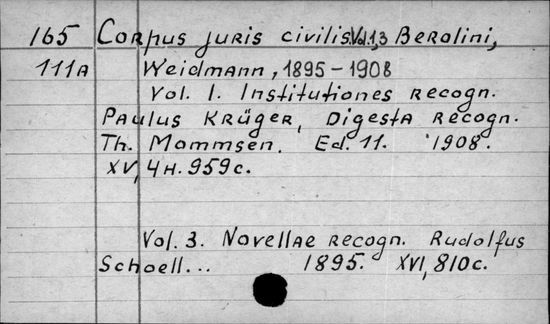 165 Corpus juris civilis. Vol.1,3 Berolini,
111A Weidmann, 1895-1908
Vol. 1. Institutiones recogn.
Paulus Krüger, Digesta recogn.
Th. Mommsen. Ed. 11. 1908.
XV, 4н. 959c.
Vol. 3. Novellae recogn. Rudolfus
Schoell... 1895. XVI, 810c.